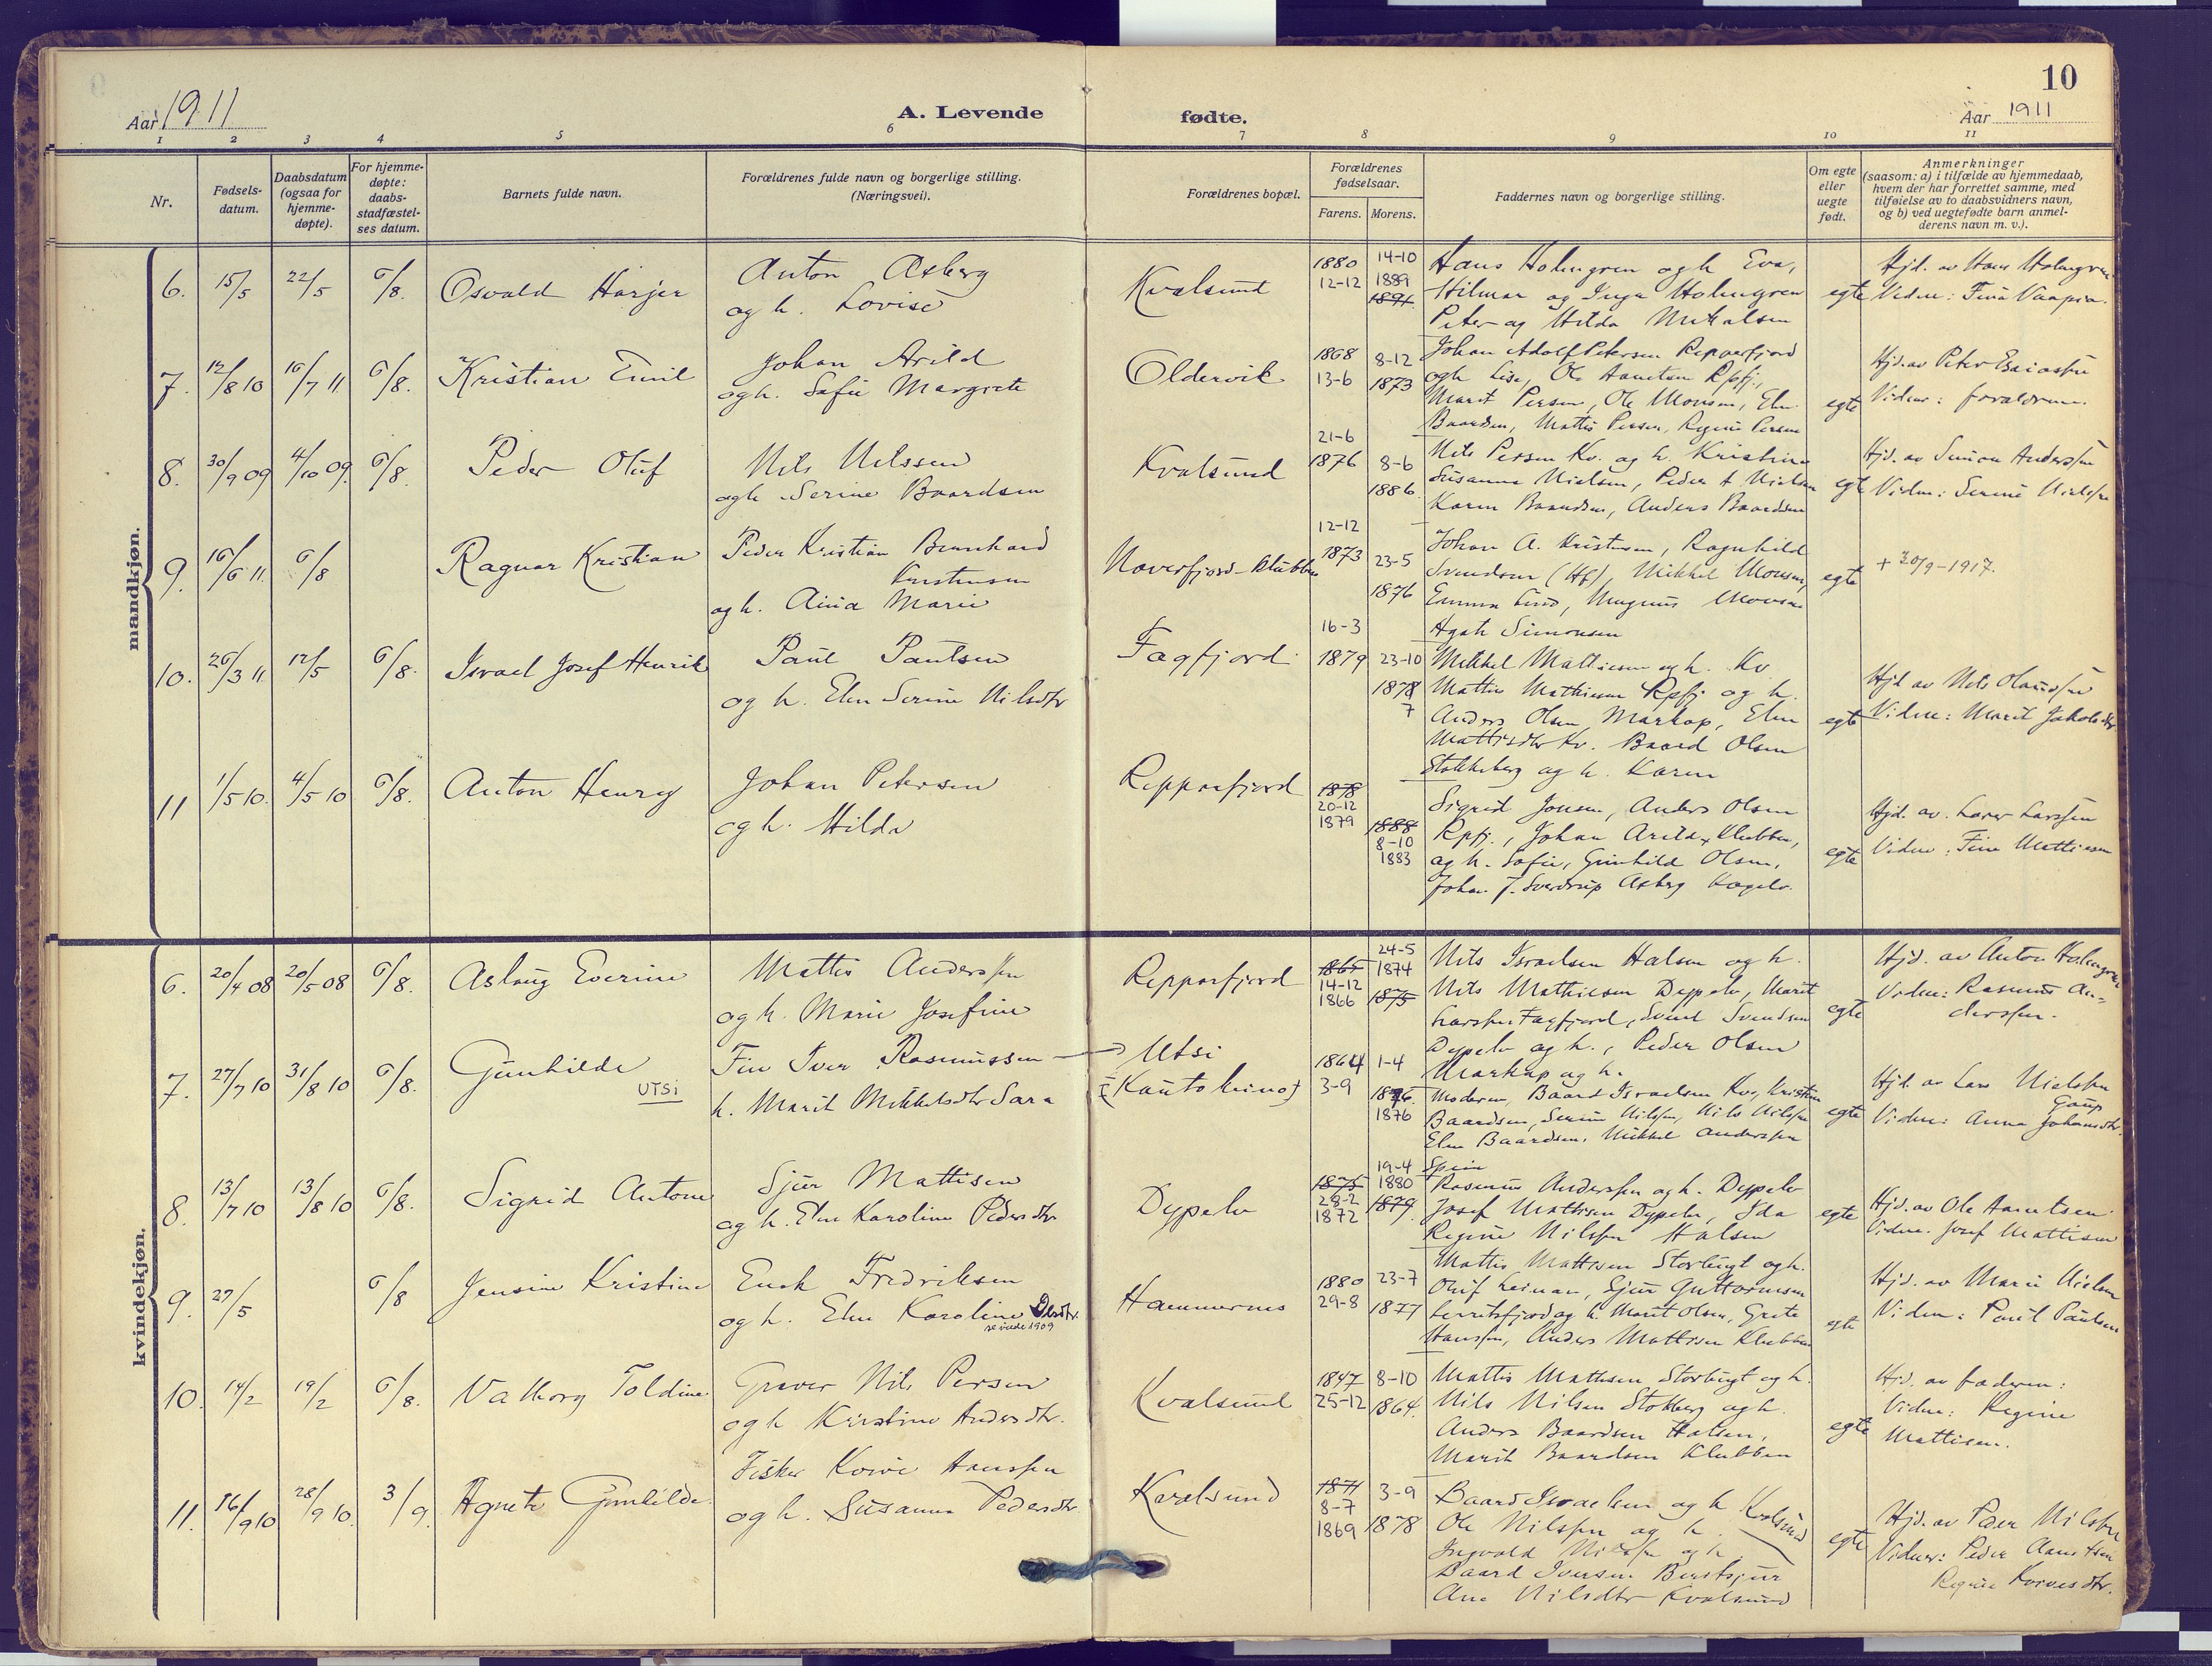 10
Aar 1911
A. Levende
fødte.
Aar 1911
1 2 3 4 5 6 7 8 9 10 11
Nr.
Fødsels-
datum.
Daabsdatum
(ogsaa for
hjemme-
døpte).
For hjemme-
døpte:
daabs-
stadfæstel-
ses datum.
Barnets fulde navn.
Forældrenes fulde navn og borgerlige stilling.
(Næringsvei).
Forældrenes bopæl.
Forældrenes
fødselsaar.
Farens. Morens.
Faddernes navn og borgerlige stilling.
Om egte
eller
uegte
født.
Anmerkninger
(saasom: a) i tilfælde av hjemmedaab,
hvem der har forrettet samme, med
tilføielse av to daabsvidners navn,
og b) ved uegtefødte barn anmel-
derens navn m. v.).
mandkjøn.
6. 15/5 22/5 6/8. Osvald Harjer
Anton Axberg
og h. Lovise
Kvalsund
1880
12-12
14-10
1889
1891
Hans Holmgren og h Eva,
Hilmar og Inga Holmgren
Peter og Hilda Mikalsen
egte
Hjd. av Hans Holmgren
Vidne: Fina
7. 12/8 10 16/7 11 6/8. Kristian Emil
Johan Arild
og h. Sofie Margrete
Oldervik
1868
13-6
8-12
1873
Johan Adolf Petersen Repparfjord
og h Lise, Ole Ametsen Rpfj.,
Marit Persen, Ole Monsen, Elen
Baardsen, Mattis Persen, Regine Persen
egte
Hjd. av Peter Esaiassen
Vidner: forældrene.
8. 30/9 09 4/10 09. 6/8. Peder Oluf
Nils Nilssen
og h Serine Baardsen
Kvalsund
21-6
1876
8-6
1886.
Nils Persen Kv. og h. Kristine
Susanna Nielsen, Peder A Nielsen
Karen Baardsen, Anders Baardsen
egte
Hjd. av Simon Anderssen
Vidne: Serine Nielssen
9. 16/6 11. 6/8 Ragnar Kristian
Peder Kristian Bernhard
Kristensen
og h. Aina Marie
Noverfjord-Klubben
12-12
1873
23-5
1876
Johan A. Kristensen, Ragnhild
Svendsen (Hf), Mikkel Monsen,
Emma Lund, Magnus Monsen
Agate Simonsen
egte
+ 30/9-1917.
10. 26/3 11. 12/5 6/8. Israel Josef Henrik
Paul Paulsen
og h. Elen Serine Nilsdtr
Fagfjord
16-3
1879
23-10
1878
7
Mikkel Mathiesen og h. Kv.
Mattis Mathiesen Rpfj og h.
Anders Olsen Markop, Elen
Mattisdtr Kv. Baard Olsen
Stokkeberg og h. Karen
egte
Hjd av Nils Olaussen
Vidne: Marit Jakobsdtr
11 1/5 10. 4/5 10 6/8. Anton Henry
Johan Petersen
og h. Hilda
Repparfjord
1878
20-12
1879
1888
8-10
1883
Sigrid Jonsen, Anders Olsen
Rpfj., Johan Arild, Klubben,
og h. Sofie, Gunhild Olsen,
Johan J. Sverdrup Axberg
egte
Hjd. av. Larer Larssen
Vidne: Fine Mattisen
kvindekjøn.
6. 20/4 08 20/5 08 6/8. Aslaug Everine
Mattis Anderssen
og h. Marie Josefine
Repparfjord
1865
14-12
1866
24-5
1874
1875
Nils Israelsen Halsen og h.
Nils Mathiesen Dypelv, Marit
Larssen Fagfjord, Svend Svendsen
Dypelv og h., Peder Olsen
Markop og h.
egte
Hjd. av Anton Holmgren
Vidne: Rasmus An-
derssen.
7. 27/7 10 31/8 10 6/8. Gunhilde
UTSi
Fin Iver Rasmussen → Utsi
h. Marit Mikkelsdtr Sara
(Kautokeino)
1864
3-9
1-4
1876.
1876
Moderen, Baard Israelsen Kv., Kristine
Baardsen, Serine Nilssen, Nils Nilssen
Elen Baardsen, Mikkel Anderssen
Spein
egte
Hjd. av Lars Nielssen
Gaup
Vidne: Anna Johansdtr.
8. 13/7 10 13/8 10 6/8. Sigrid Antone
Sjur Mattisen
og h. Elen Karoline Pedersdtr
Dypelv
1875
28-2
1872
19-4
1880
1879.
Rasmus Anderssen og h. Dypelv
Josef Mathisen Dypelv, Ida
Regine Nilssen Halsen
egte
Hjd. av Ole Ametsen
Vidne. Josef Mattisen
9. 27/5 6/8 Jensine Kristine
Enok Fredriksen
og h. Elen Karoline Olsdtr.
se viede 1909
Hammernes
1880
29-8
23-7
1877
Mattis Mattisen Storbugt og h.
Oluf Leiman, Sjur Guttormsen
Lerritsfjord og h. Marit Olsen, Grete
Hanssen, Anders Mattisen Klubben
egte
Hjd. av Marie Nielsen
Vidne: Paul Paulsen
10. 14/2 19/2 6/8. Valborg Toldine
Graver Nils Persen
og h Kirstine Andersdtr.
Kvalsund
1847
25-12
8-10
1864.
Mattis Mathisen Storbugt og h.
Nils Nilsen Stokberg og h.
Anders Baardsen Halsen,
Marit Baardsen Klubben
egte
Hjd. av faderen:
Vidne: Regine
Mattisen.
11. 16/9 10 28/9 10. 3/9. Agnete Gunhilde
Fisker Koive Hanssen
og h. Susanna Pedersdtr.
Kvalsund
1871
8-7
1869
3-9
1878
Baard Israelsen og h Kvalsund
Ole Nilssen og h.
Ingvald Nilssen og h
Baard Iversen
Ane Nilsdtr Kvalsund
egte
Hjd. av Peder Nilssen
Vidner: Peder Ametsen
Regine Koivesdtr.